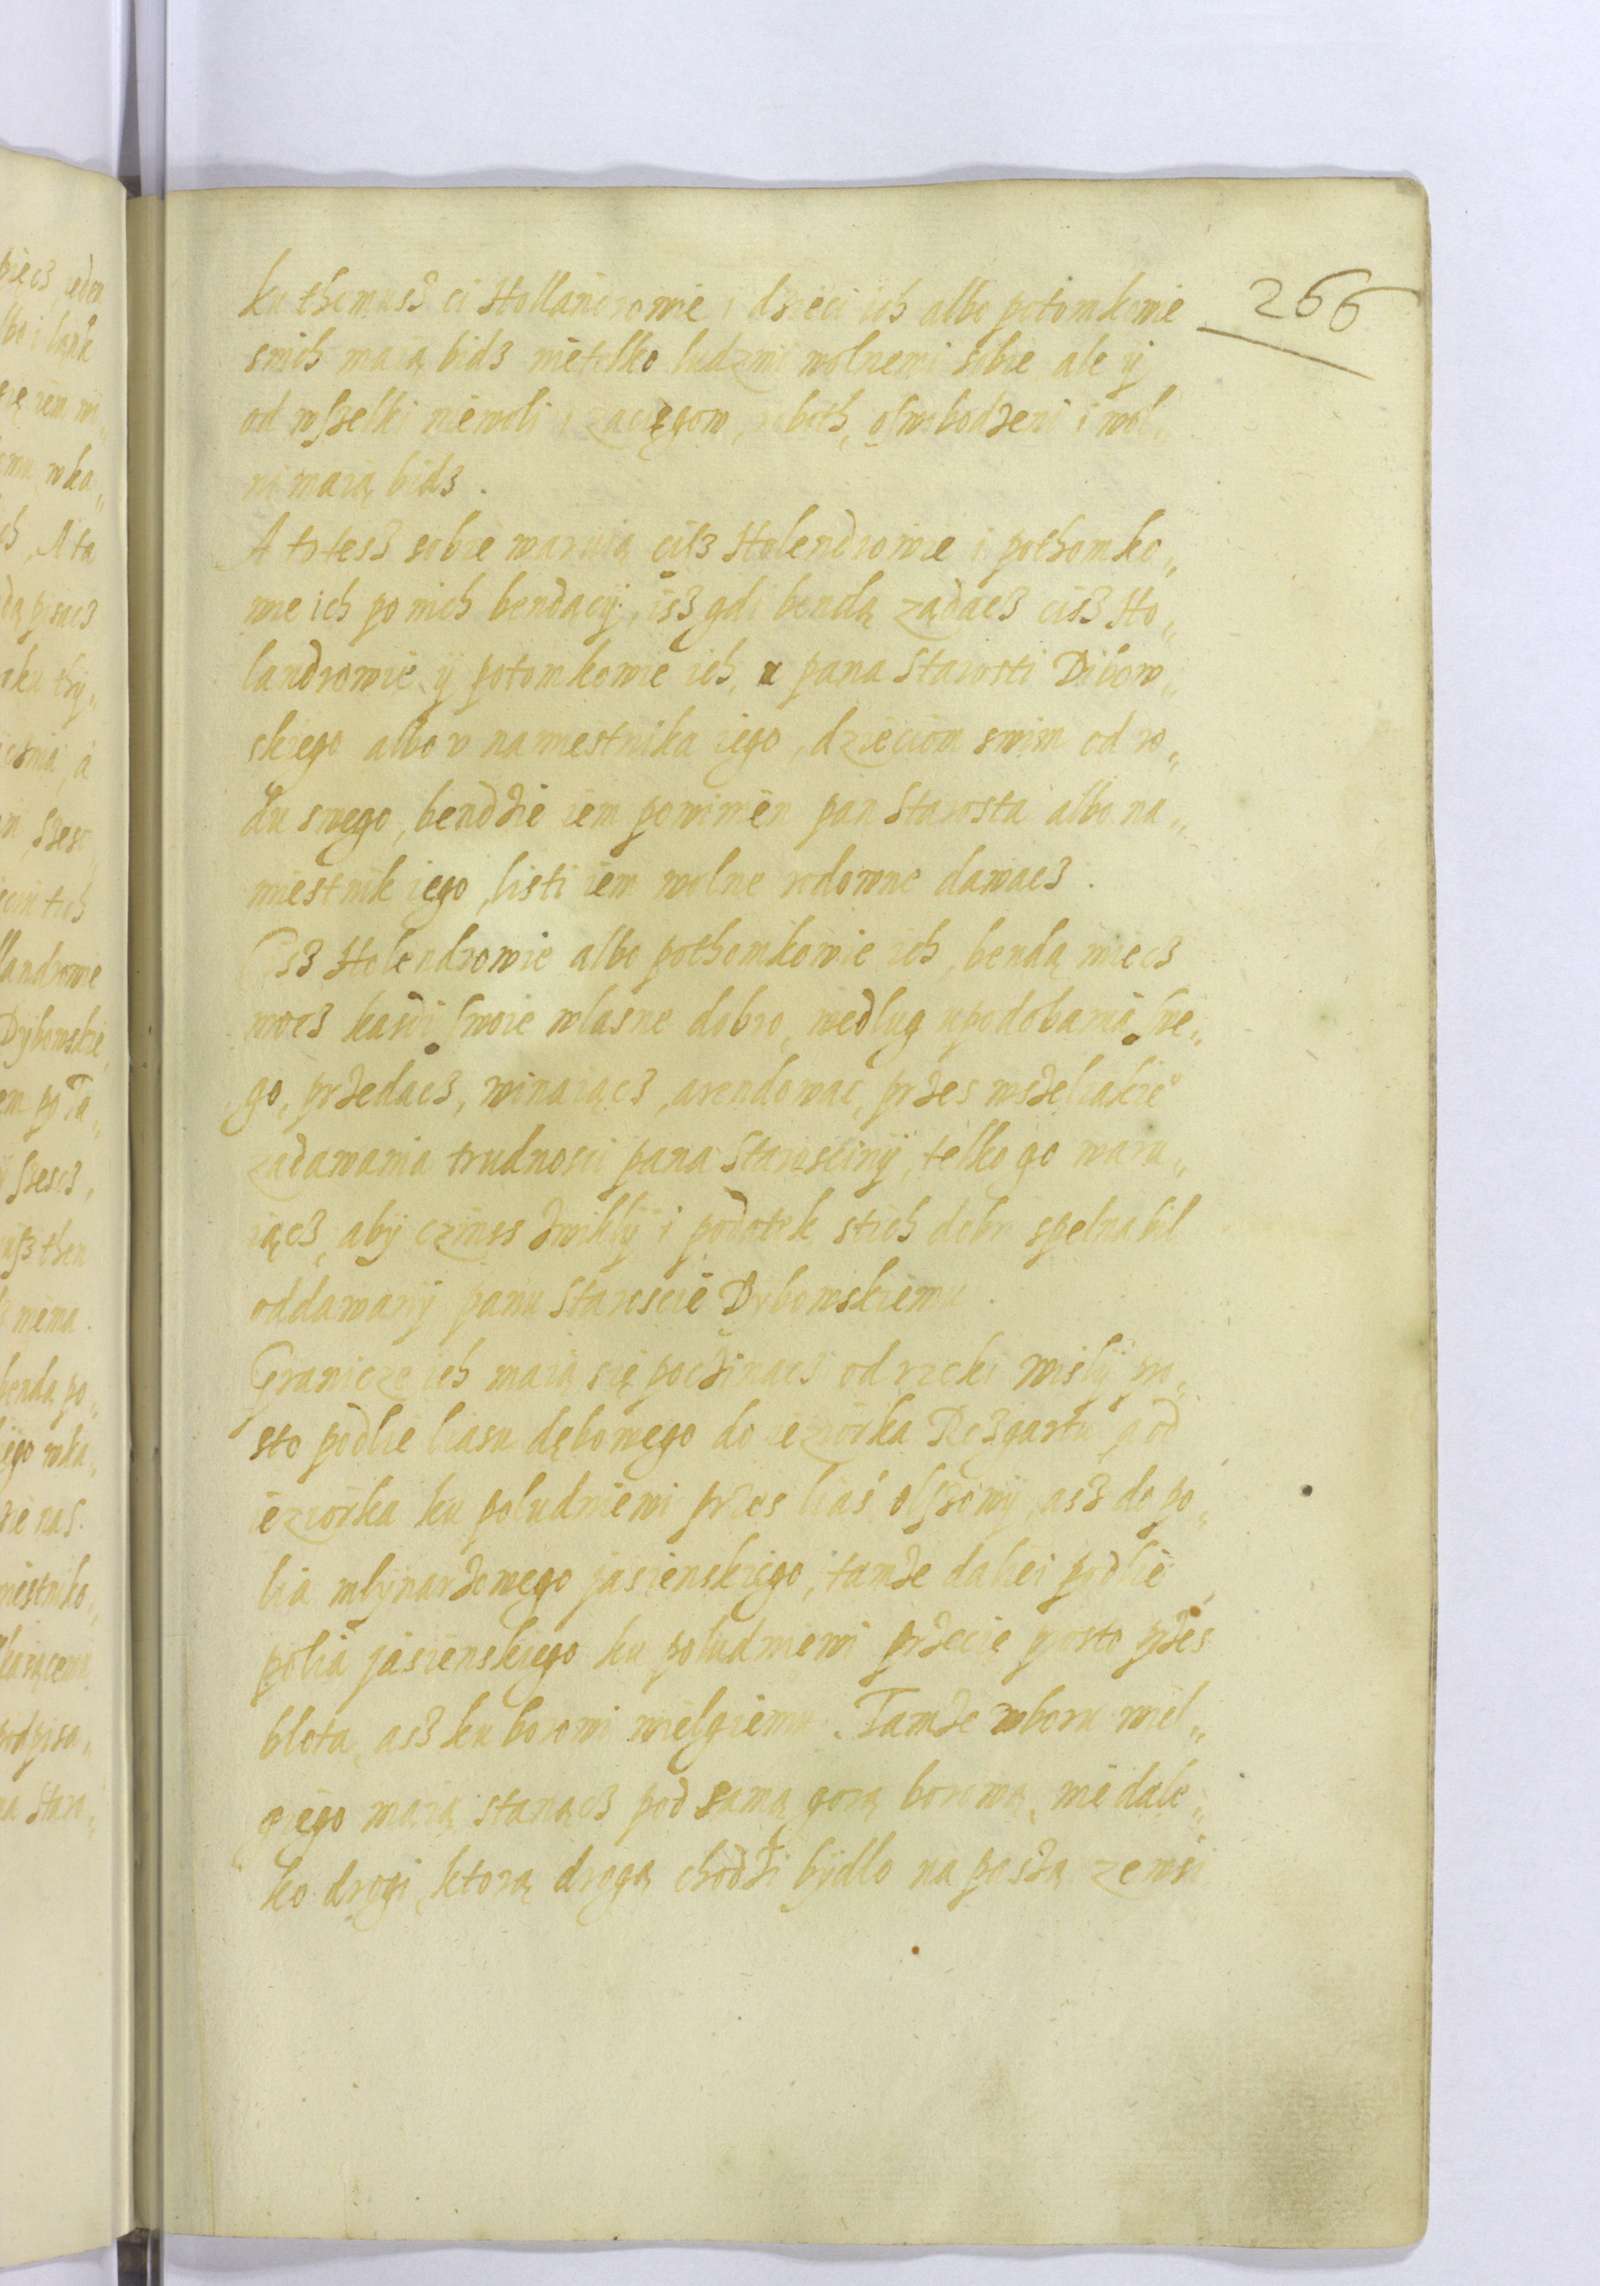 266
ku themuss ci Hollandrowie i dzieci ich albo potomkowie
snich maią bids nietelko ludzmi wolnemi sobie ale ÿ
od wszelki niewoli i zaciągow, roboth, oswobodzeni i wol„
ni maią bids.
A tstesz sobie waruią cisz Holendrowie i pothomko„
wie ich po nich bendącÿ, isz gdi bendą ządacz cisz Ho„
landrowie ÿ potomkowie ich, u pana Starosti Dibow„
skiego albo v namestnika iego, dzieciom swim od ro„
du swego, bendzie iem powinien pan Starosta albo na„
miestnik iego, listi iem wolne rodowne dawacz.
Cisz Holendrowie albo pothomkowie ich, bendą miecz
mocz kazdi swoie wlasne dobro, wedlug upodobania swe„
go, przedacz, winaiącz, arendowac, przes wszeliakie°
zadawania trudnosci pana Starosciny, telko go waru„
iącz, abÿ czines zwiklÿ i podatek stich dobr spelna bil
oddawanÿ panu Staroscie Dybowskiemu.
Granicze ich maią się poczinacz od rzeki wislÿ pro„
sto podlie liasu dębowego do ieziorka Roszgartu, a od
ieziorka ku poludniewi przes lias olszowÿ, asz do po„
lia mlÿnarzowego jasienskiego, i tamze daliei podlie
polia jasienskiego ku poludniewi przecie prosto przes
blota, asz ku borowi wielgiemu. Tamze wboru wiel„
giego maią stanącz pod samą gorą borową, niedale„
ko drogi, ktorą drogą chodzi bÿdlo na paszą ze wsi